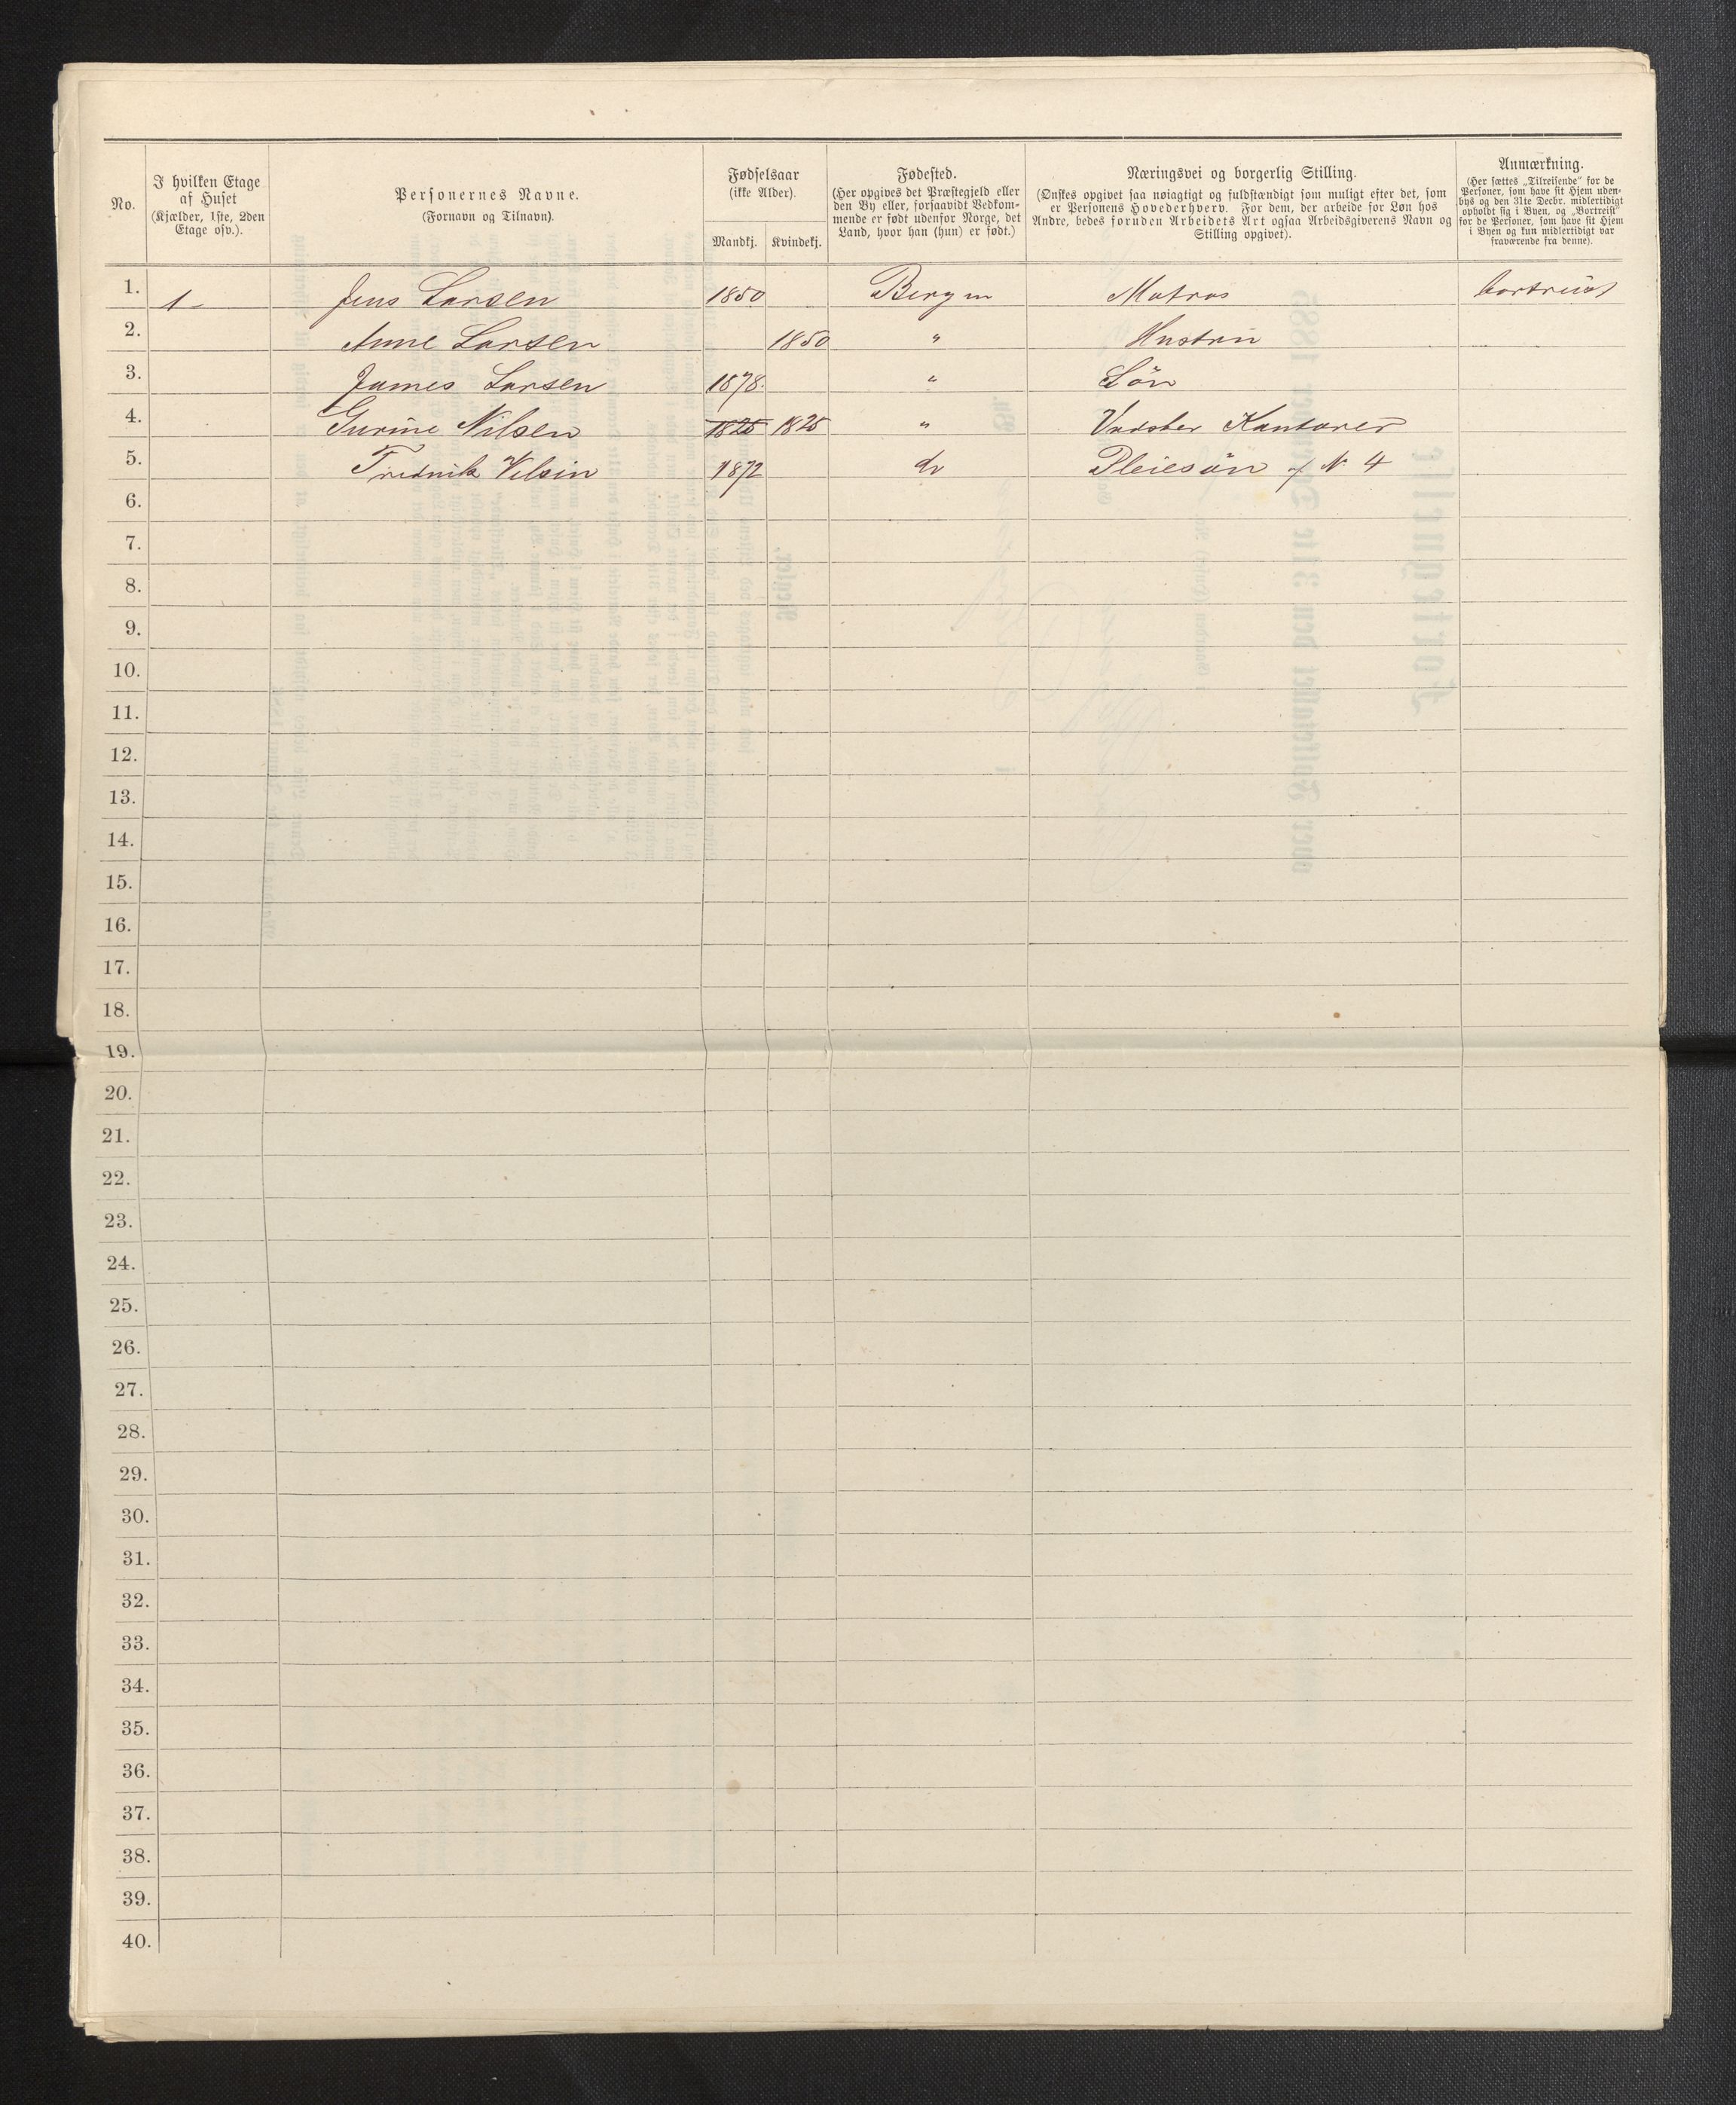 No.
I hvilken Etage
af Huset
(Kjælder, 1ste, 2den
Etage osv.).
Personernes Navne.
(Fornavn og Tilnavn).
Fødselsaar
(ikke Alder).
Mandkj. Kvindekj.
Fødested.
(Her opgives det Præstegjeld eller
den By eller, forsaavidt Vedkom-
mende er født udenfor Norge, det
Land, hvor han (hun) er født.)
Næringsvei og borgerlig Stilling.
(Ønskes opgivet saa nøiagtigt og fuldstændigt som muligt efter det, som
er Personens Hovederhverv. For dem, der arbeide for Løn hos
Andre, bedes foruden Arbeidets Art ogsaa Arbeidsgiverens Navn og
Stilling opgivet).
Anmærkning.
(Her sættes „Tilreisende" for de
Personer, som have sit Hjem uden-
bys og den 31te Decbr. midlertidigt
opholdt sig i Byen, og „Bortreist"
for de Personer, som have sit Hjem
i Byen og kun midlertidigt var
fraværende fra denne).
1. 1 - Jens Larsen 1850 Bergen Matros bortreist
2. Anne Larsen 1850 " Hustru
3. James Larsen 1878. " Søn
4. Gurine Nilsen 1825 1825 " Vadsker Kontorer
5. Fredrik Nilsen 1872 do Pleiesøn af N 4
6.
7.
8.
9.
10.
11.
12.
13.
14.
15.
16.
17.
18.
19.
20.
21.
22.
23.
24.
25.
26.
27.
28.
29.
30.
31.
32.
33.
34.
35.
36.
37.
38.
39.
40.